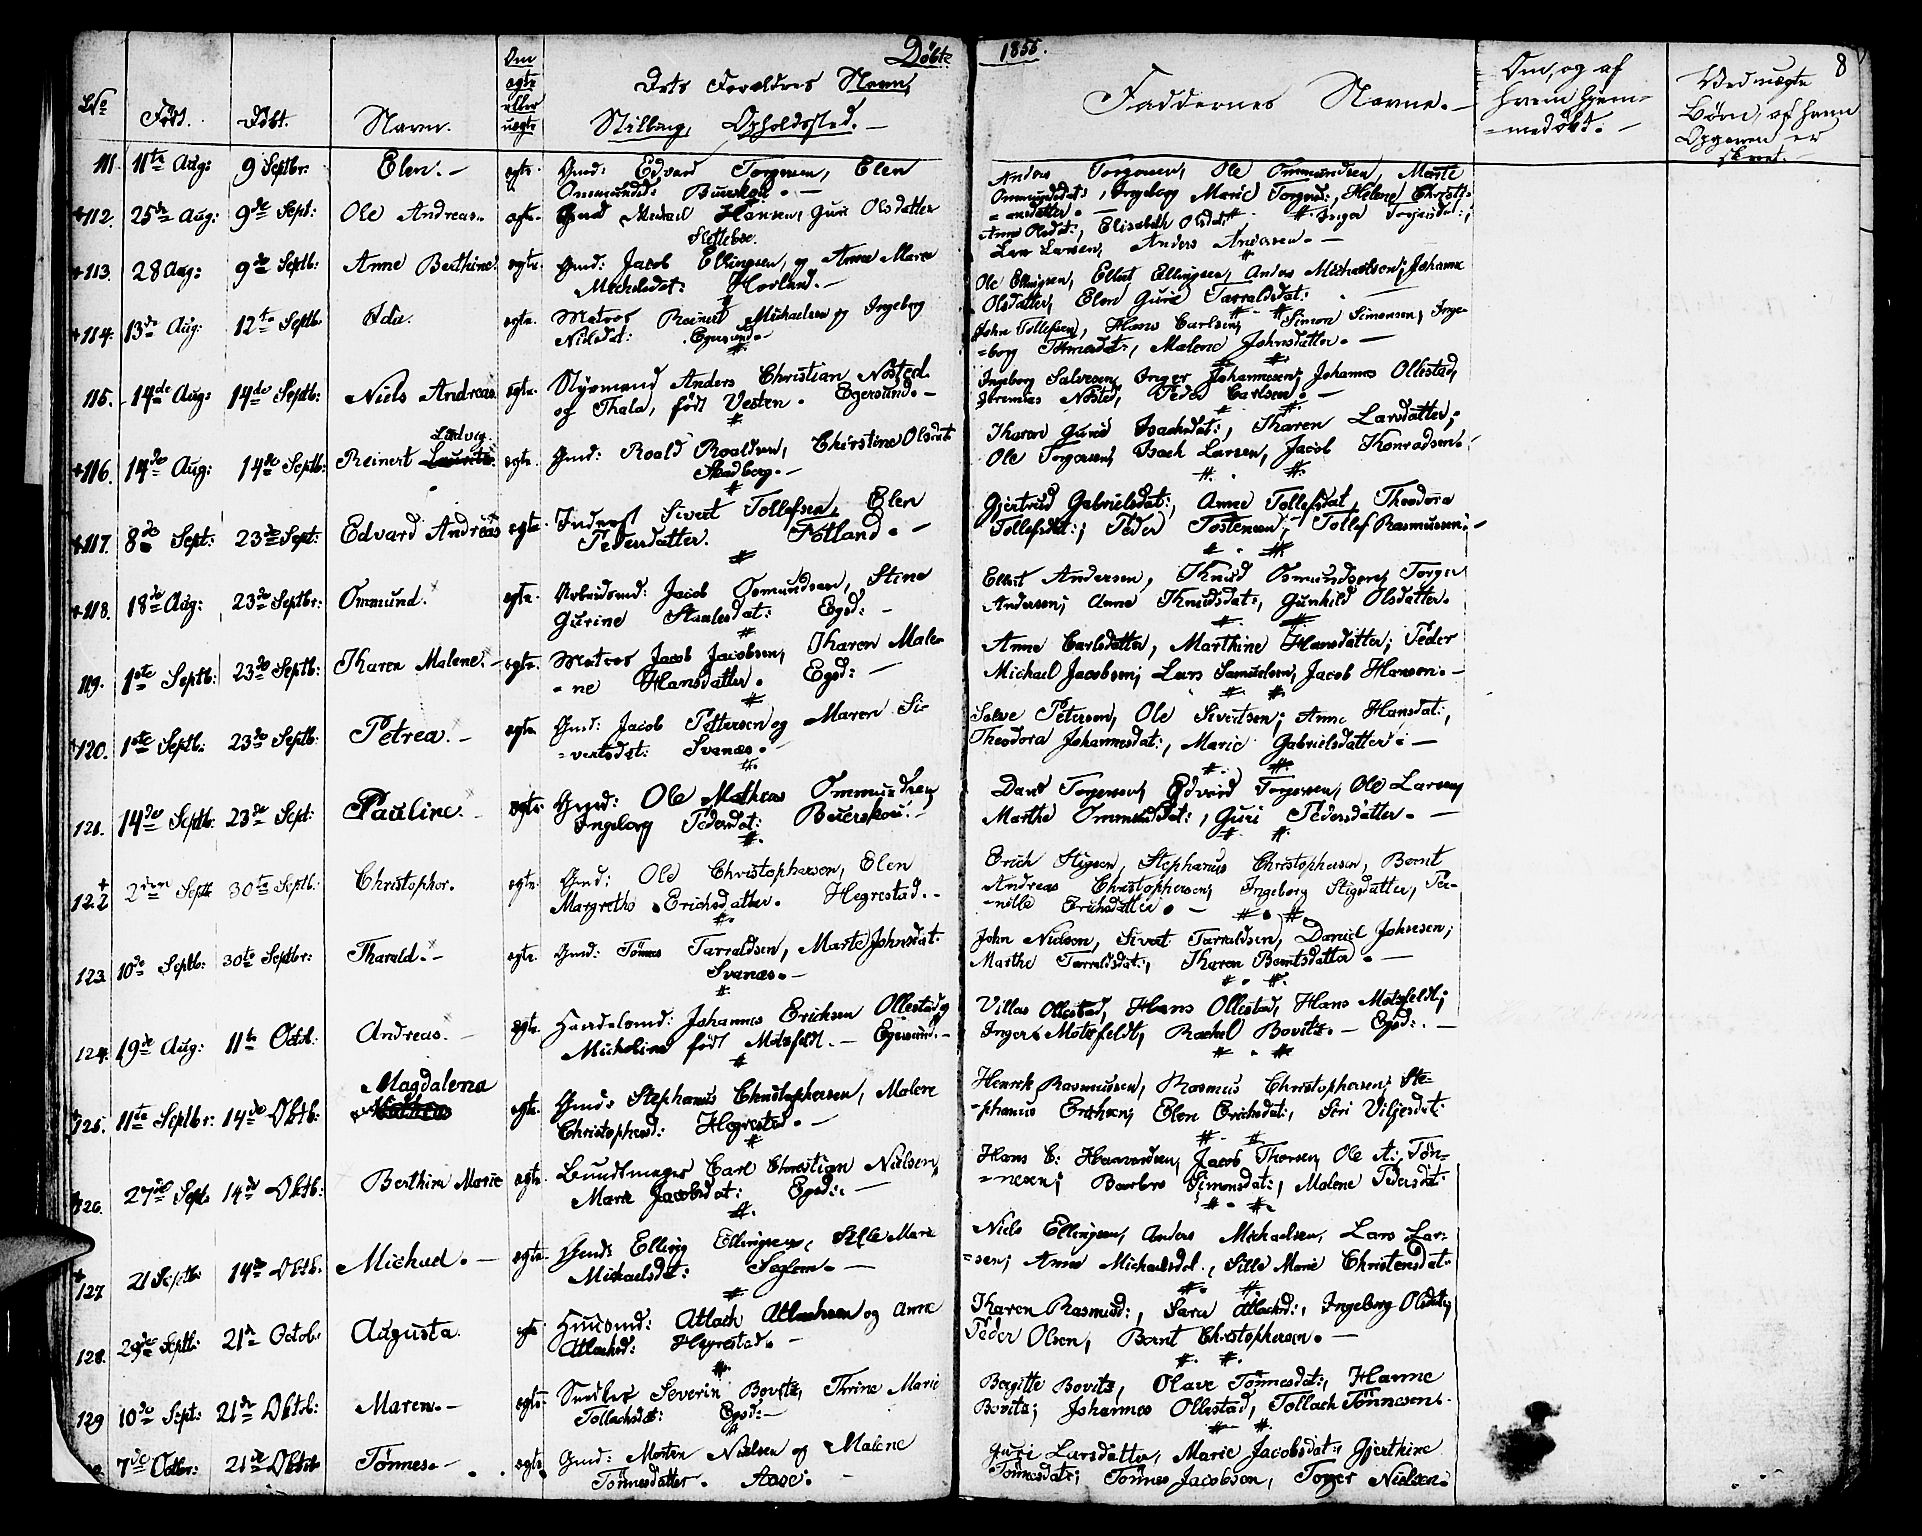 Døbte 1855. 8
No Født. Døbt. Navn. Om egte eller uegte Dets Forældres Navn, Stilling, Opholdssted. — Faddernes Navne. — Om, og af hvem hjemmedøbt. — Ved uegte Børn, af hvem Opgaven er skreet. —
111. 11te Aug: 9 Septbr: Elen. — egte. Gmd: Edvard Torgersen, Elen
Ommundsd: Buerskou. —
Anders Torgersen, Ole Ommundsen, Marte
Ommundsdat:, Ingeborg Marie Torgersd:, Helene Christi-
=ansdatter. —
+112. 25de Aug: 9de Sept: Ole Andreas. egte. Gmd Mikael Hansen, Guri Olsdatter
Slettebøe.
Anne Olsdat:, Elisabeth Olsdat: Inger Torjersdat:;
Lars Larsen, Anders Andersen. —
+113. 28 Aug: 9de Septb: Anne Berthine. egte. Gmd: Jacob Ellingsen, og Anne Marie
Michelsdat: Hovland. —
Ole Ellingsen, Ellert Ellingsen, Anders Michaelsen; Johanne
Olsdatter, Elen Gurie Tarraldsdat:
+114. 13de Aug: 12te Septb: Ida. egte. Matros Reinert Michaelsen og Ingeborg
Nielsdat: Egersund. —
John Tollefsen, Hans Carlsen, Simon Simonsen, Inge-
=borg Tømesdat:, Malene Johnsdatter. —
115. 14de Aug: 14de Septb: Niels Andreas. egte. Styrmand Anders Christian Nøsted
og Thala, født Vesten. Egersund. —
Ingeborg Salvesen, Inger Johannesen; Johannes Ollestad,
Jeremias Nøsted, Peder Carlsen. —
+116. 14de Aug: 14de Septb: Reinert Ludvig egte. Gmd: Roald Roaldsen, Christine Olsdat
Skadberg. —
Tharen Gurie Isachsdat:, Tharen Larsdatter;
Ole Torgersen, Isach Larsen, Jacob Thonradsen.
+117. 8de Sept: 23de Sept: Edvard Andreas egte. Inderst Sivert Tollefsen, Elen
Pedersdatter. Fotland. —
Gjertrud Gabrielsdat:, Anne Tollefsdat, Theodora
Tollefsdat:; Peder Tostensen, Tollef Rasmussen. —
+118. 18de Aug: 23de Septbr: Ommund. egte. Arbeidsmd: Jacob Osmundsen, Stine
Gurine Staalesdat: Egsd: —
Ellert Andersen, Thnud Osmundsen, Torger
Andersen; Anne Thnudsdat:, Gunhild Olsdatter.
119. 1ste Septb: 23de Septb: Tharen Malene. — egte. Matros Jacob Jacobsen, Tharen Male-
=ne Hansdatter. Egsd: —
Anne Carlsdatter, Marthine Hansdatter; Peder
Michael Jacobsen; Lars Samuelsen, Jacob Hansen. —
+120. 1ste Septb: 23de Septb: Petrea. — egte. Gmd: Jacob Pettersen og Maren Si-
=vertsdat: Svanæs. —
Salve Petersen, Ole Sivertsen; Anne Hansdat:,
Theodora Johannesdat:, Marie Gabrielsdatter. —
121. 14de Septb: 23de Sept: Pauline. — egte. Gmd: Ole Matheus Ommundsen,
Ingeborg Pedersdat: Buerskou. —
Daniel Torgersen, Edvard Torgersen, Ole Larsen,
Marthe Ommundsdat:, Guri Pedersdatter. —
+122 2den Septb 30te Septb: Christopher. egte. Gmd: Ole Christophersen, Elen
Margrethe Erichsdatter. Hegrestad. —
Erich Stigsen, Stephanus Christophersen, Bernt
Andreas Christophersen, Ingeborg Stigsdatter, Per-
=nille Erichsdatter. —
123 10de Septb: 30te Septbr: Tharald. — egte. Gmd: Tønnes Tarraldsen, Marte Johnsdat.
Svanæs. —
John Nielsen, Sivert Tarraldsen, Daniel Johnsen;
Marthe Tarraldsdat:, Tharen Berntsdatter. —
124. 19de Aug: 11te Octob: Andreas. — egte. Handelsmd: Johannes Erichsen Ollestad og
Micheline født Motzfeldt. — Egersund. —
Villas Ollestad, Hans Ollestad, Hans Motzfeldt;
Inger Motzfeldt, Rachel Bovitz. — Egsd:. —
+125. 11te Septbr: 14de Oktb: Magdalena egte. Gmd: Stephanus Christophersen, Malene
Christophersd: Hegrestad. —
Henrik Rasmussen, Rasmus Christophersen, Ste-
=phanus Erichsen; Elen Erichsdat:, Siri Viljesdat:
126. 27de Sept 14de Oktb: Berthine Marie egte. Bundtmager Carl Christian Nielsen,
Marie Jacobsdat: Egsd:. —
Hans C: Haavardsen, Jacob Thorsen, Ole A: Tøn-
=nesen; Barbro Simonsdat:, Malene Pedersdat:
+127 21 Septb: 14de Oktb: Michael. — egte. Gmd: Elling Ellingsen, Sille Marie
Michaelsdat: Seglem. —
Niels Ellingsen, Anders Michaelsen, Lars Lar-
=sen; Anne Michaelsdat., Sille Marie Christensdat.
128. 29de Septb: 21de Octob: Augusta. egte Huusmd: Atlach Atlachsen og Anne
Atlachsd: Hegrestad. —
Tharen Rasmusd:, Sara Atlachsd:, Ingeborg Olsdatt;
Peder Olsen, Bernt Christophersen. —
129 10de Sept: 21de Oktob: Maren. — egte. Snedker Severin Bovitz, Thrine Marie
Tollachsdat: Egsd: —
Bergitte Bovitz, Olave Tønnesdat:, Hanne
Bovitz; Johannes Ollestad, Tollach Tønnesen.
7de Octbr: 21de Oktob Tønnes. — egte. Gmd: Morten Nielsen og Malene
Tønnesdatter. Aase. —
Guri Larsdatter, Marie Jacobsdat:, Gjerthine
Tønnesdat:; Tønnes Jacobsen, Torger Nielsen.